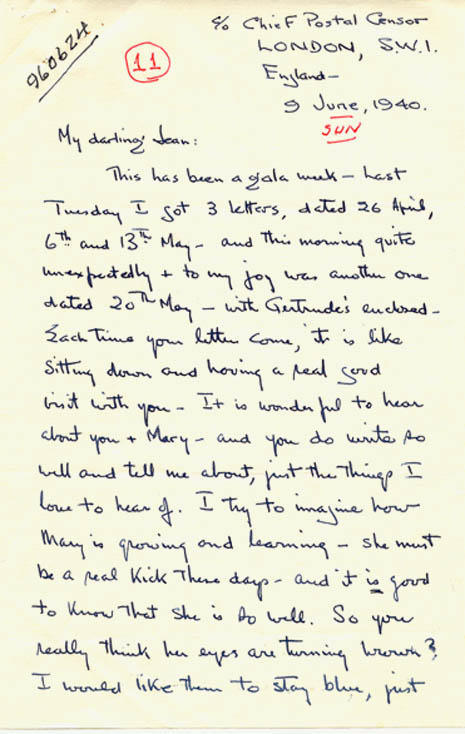 960624
11
c/o Chief Postal Censor
LONDON, S.W.1.
England-
9 June, 1940.
SUN
My darling Jean:
This has been a gala week - Last
Tuesday I got 3 letters, dated 26 April,
6th and 13th May - and this morning quite
unexpectedly + to my joy was another one
dated 20th May - with Gertrude's enclosed -
Each time your letters come, it is like
sitting down and having a real good
visit with you - It is wonderful to hear
about you + Mary - and you do write so
well and tell me about, just the things I
love to hear of. I try to imagine how
Mary is growing and learning - she must
be a real kick these days - and it is good
to know that she is so well. So you
really think her eyes are turning brown?
I would like them to stay blue, just